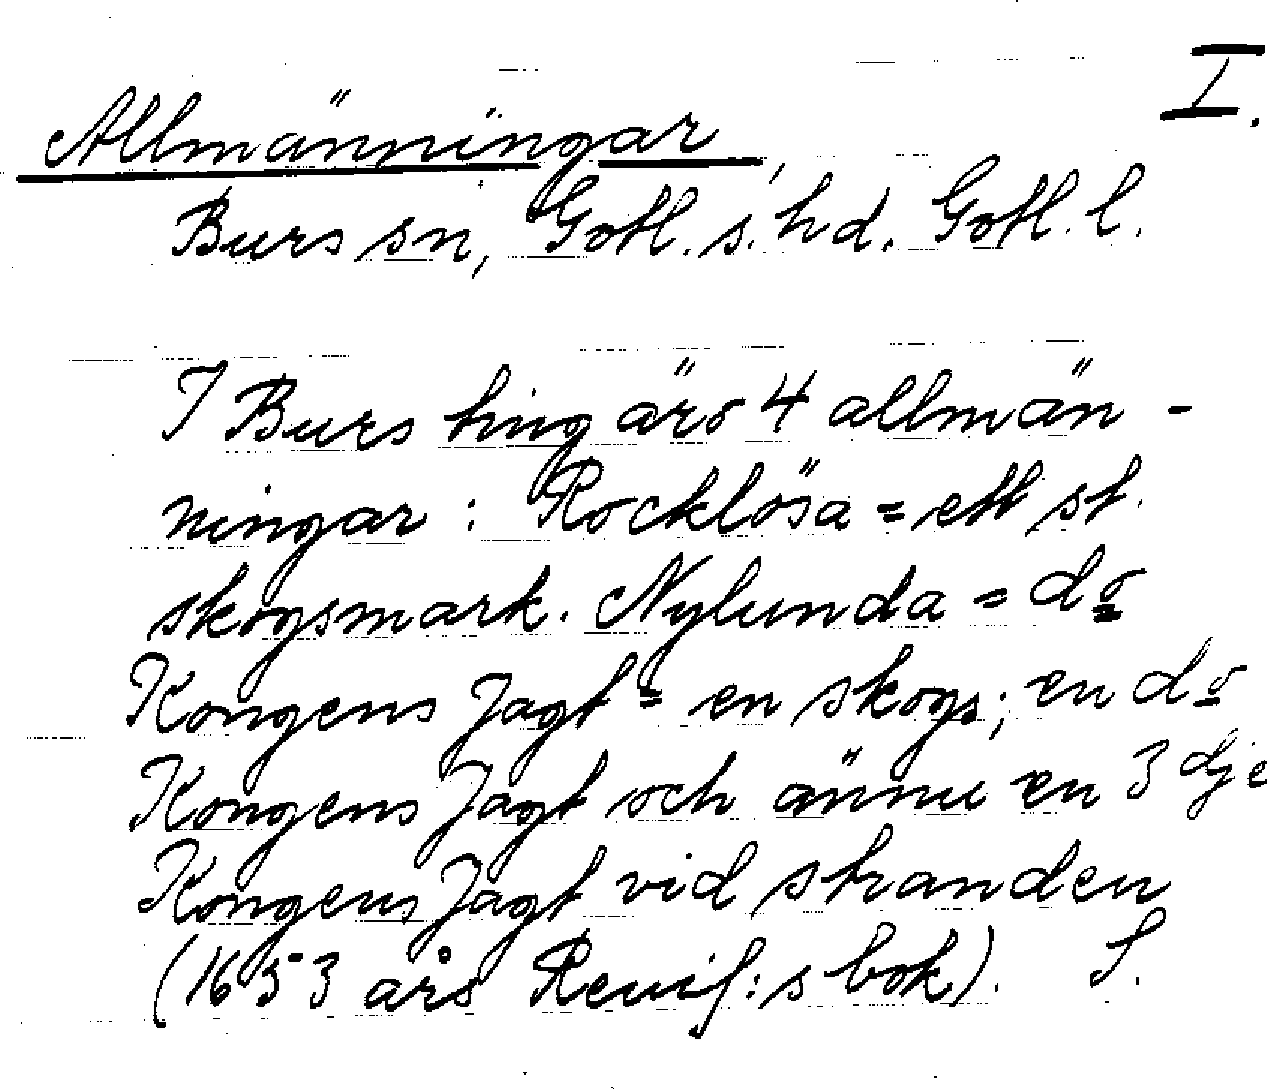 I.
Allmänningar,
Burs sn, Gotl. s. hd. Gotl. l.
I Burs ting äro 4 allmän-
ningar: Rocklösa = ett st.
skogsmark. Nylunda = do
Kongens Jagt = en skogs; en do
Kongens Jagt och ännu en 3dje
Kongens Jagt vid stranden
(1653 års Revis:s bok). S.